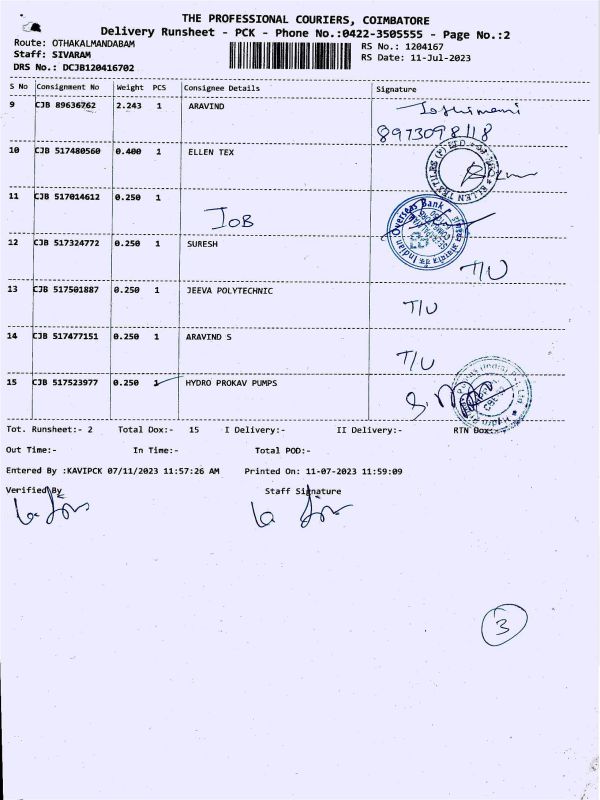 THE PROFESSIONAL COURIERS, COIMBATORE
Delivery Runsheet - PCK - Phone No.:0422-3505555 - Page No.:2
Route: OTHAKALMANDABAM
Staff: SIVARAM
DRS No.: DCJB120416702
RS No.: 1204167
RS Date: 11-Jul-2023
S No Consignment No Weight PCS Consignee Details Signature
9 CJB 89636762 2.243 1 ARAVIND
8973098118
10 CJB 517480560 0.400 1 ELLEN TEX
11 CJB 517014612 0.250 1
IOB
Indian Overseas Bank
12 CJB 517324772 0.250 1 SURESH
T/U
13 CJB 517501887 0.250 1 JEEVA POLYTECHNIC
T/U
14 CJB 517477151 0.250 1 ARAVIND S
T/U
15 CJB 517523977 0.250 1 HYDRO PROKAV PUMPS
Tot. Runsheet:- 2 Total Dox:- 15 I Delivery:- II Delivery:- RTN Dox:-
Out Time:- In Time:- Total POD:-
Entered By :KAVIPCK 07/11/2023 11:57:26 AM Printed On: 11-07-2023 11:59:09
Verified By Staff Signature
3